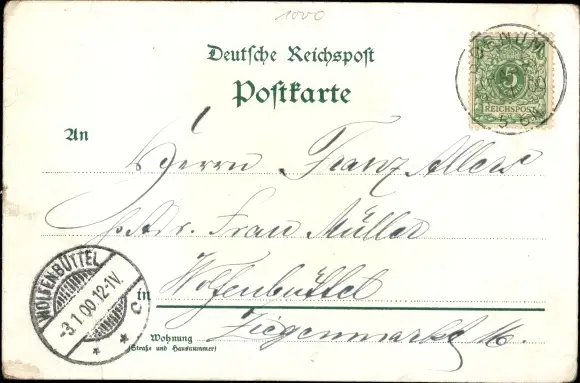 1000
Deutsche Reichspost
Postkarte
DENUM
5
REICHSPOST
5-6N
An
Herrn Franz Allers
p. Adr. Frau Müller
WOLFENBÜTTEL
-3.1.00.12-1V.
* * C
in Wolfenbüttel
Wohnung
(Straße und Hausnummer)
Ziegenmarkt